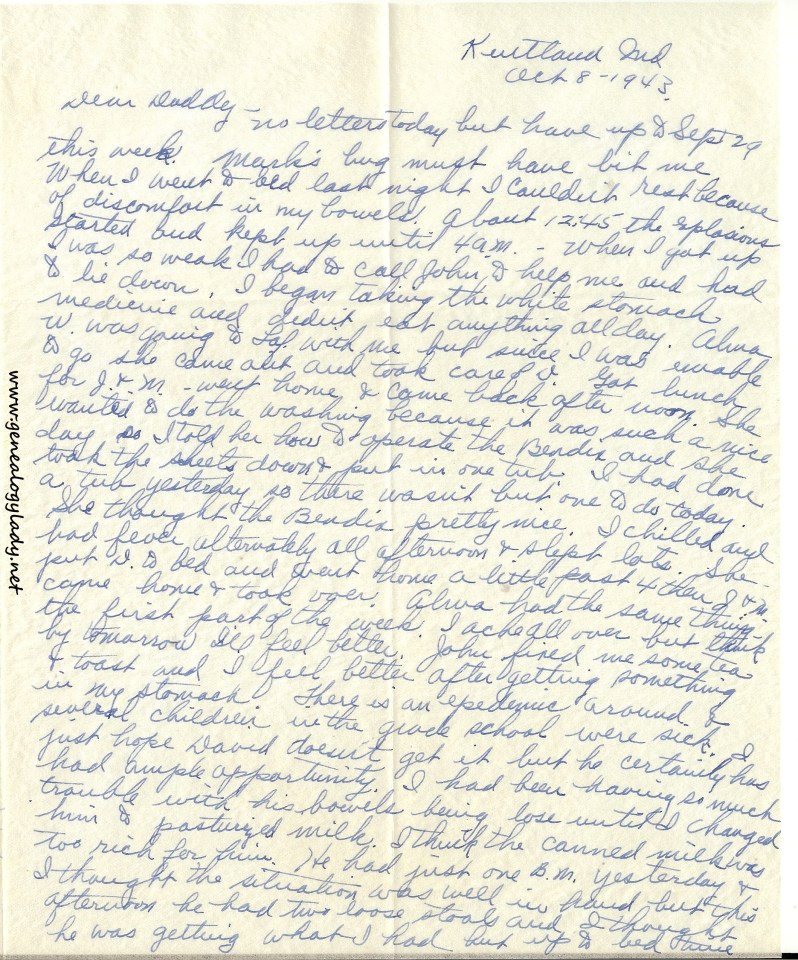 Kentland Ind
Oct 8-1943.
Dear Daddy - no letters today but have up to Sept 29
this week. Mark's bug must have bit me
When I went to bed last night I couldn't rest because
of discomfort in my bowels. About 12:45 the explosions
started and kept up until 4 a.m. - When I got up
I was so weak I had to call John, to help me and had
to lie down. I began taking the white stomach
medicine and didn't eat anything all day. Alma
W. was going to Laf with me but since I was unable
to go she came out and took care of D. Got lunch
for J. & M. - went home & came back after noon. She
wanted to do the washing because it was such a nice
day so I told her how to operate the Bendix and she
took the sheets down & put in one tub. I had done
a tub yesterday so there wasn't but one to do today.
She thought the Bendix pretty nice. I chilled and
had fever alternately all afternoon & slept lots. She
put D. to bed and went home a little past 4 then J & M.
came home & took over. Alma had the same thing
the first part of the week. I ache all over but think
by tomorrow I'll feel better. John fixed me some tea
& toast and I feel better after getting something
in my stomach. There is an epedemic around &
several children in the grade school were sick. I
just hope David doesn't get it but he certainly has
had ample opportunity. I had been having so much
trouble with his bowels being lose until I changed
him to pasturized milk. I think the canned milk was
too rich for him. He had just one B.M. yesterday &
I thought the situation was well in hand but this
afternoon he had two loose stools and I thought
he was getting what I had but up to bed time
www.genealogylady.net